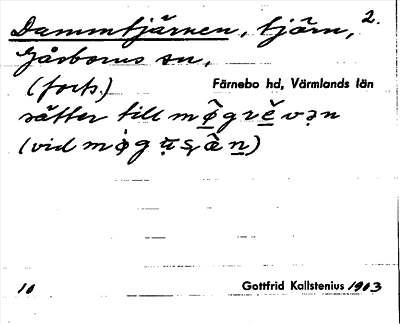 Dammtjärnen, tjärn, 2.
Gåsborns sn,
(forts.) Färnebo hd, Värmlands län
sätter till
(vid
10 Gottfrid Kallstenius 1903